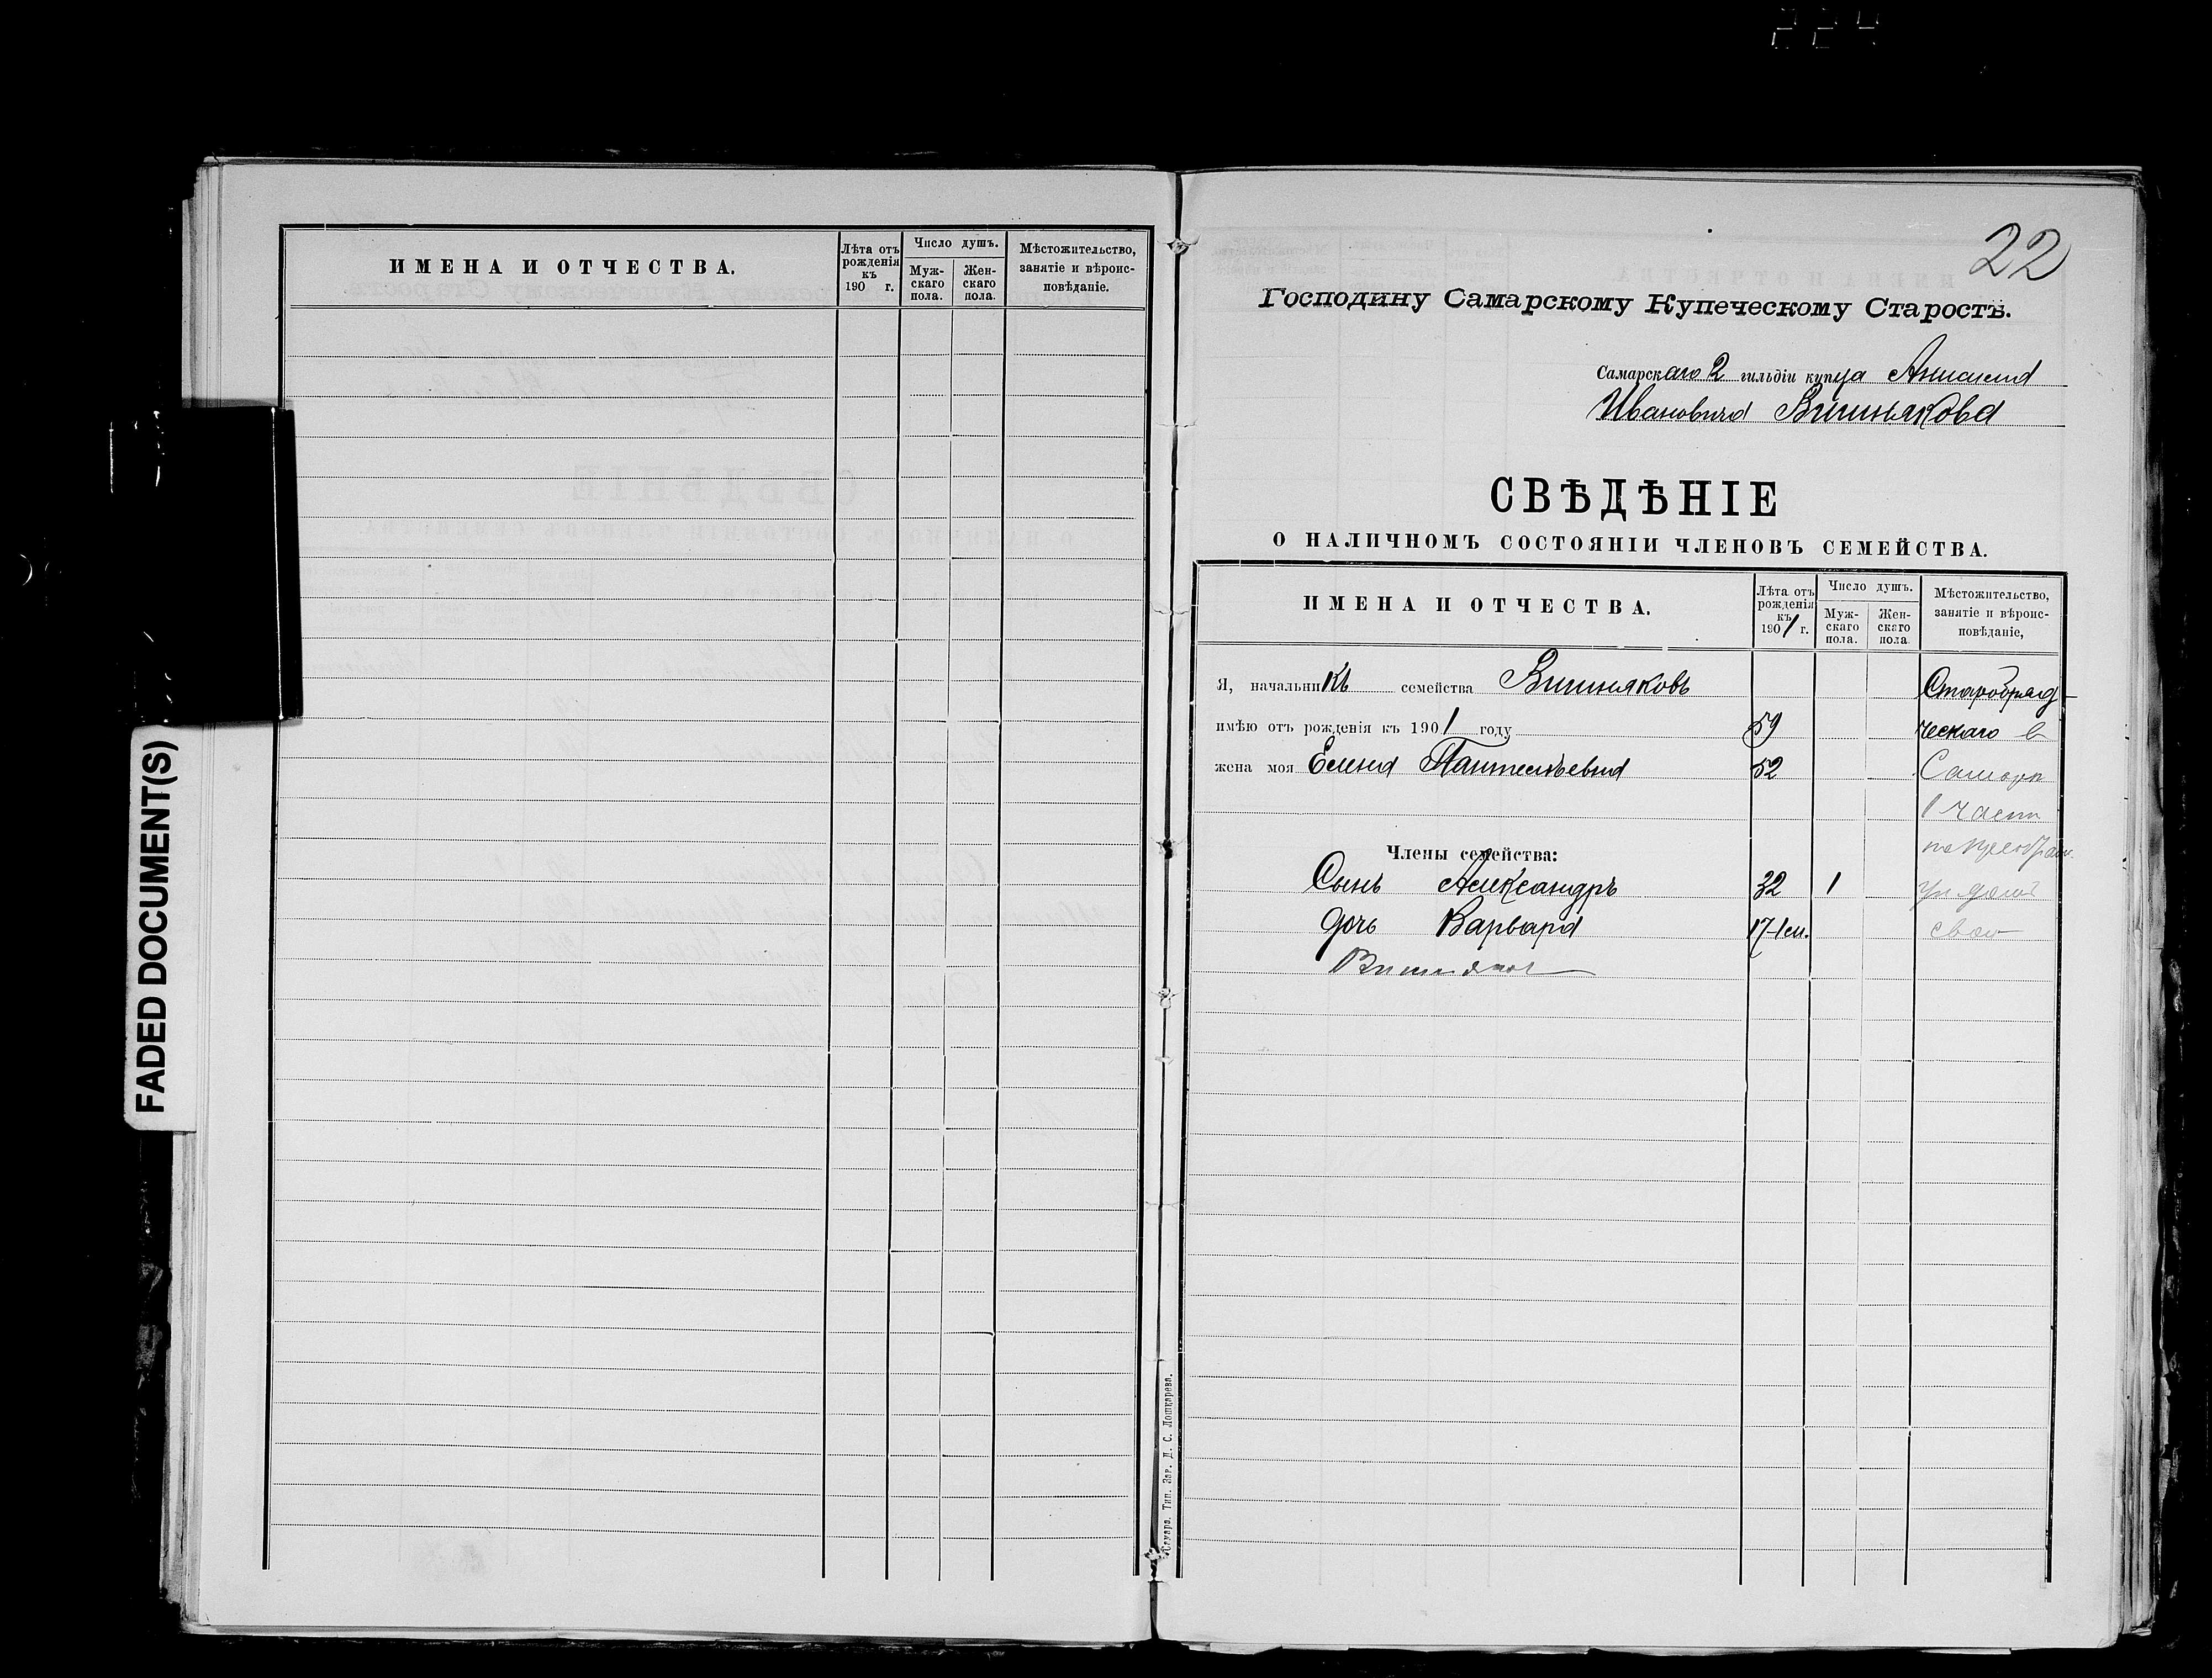 224
FADED DOCUMENT(S)
ИМЕНА И ОТЧЕСТВА.
Лѣта отъ рожденія къ 190 г.
Число душъ.
Муж-скаго пола.
Жен-скаго пола.
Мѣстожительство, занятіе и вѣроис-повѣданіе.
22
Господину Самарскому Купеческому Старостѣ.
Самарскаго 2 гильдіи купца
Ивановича Вишнякова
СВѢДѢНІЕ
О НАЛИЧНОМЪ СОСТОЯНІИ ЧЛЕНОВЪ СЕМЕЙСТВА.
ИМЕНА И ОТЧЕСТВА.
Лѣта отъ рожденія къ 1901 г.
Число душъ.
Муж-скаго пола.
Жен-скаго пола
Мѣстожительство, занятіе и вѣроис-повѣданіе,
Я, начальникъ семейства Вишняковъ Старобряд-
имѣю отъ рожденія къ 1901 году 59 ческаго в
жена моя Елена Пантелѣевна 52 Самарѣ
1 части
Члены семейства:
Сынъ Александръ 32 1
дочь Варвара 17-1м. свой
Самара. Тип. Зар. Д. С. Лошкарева.